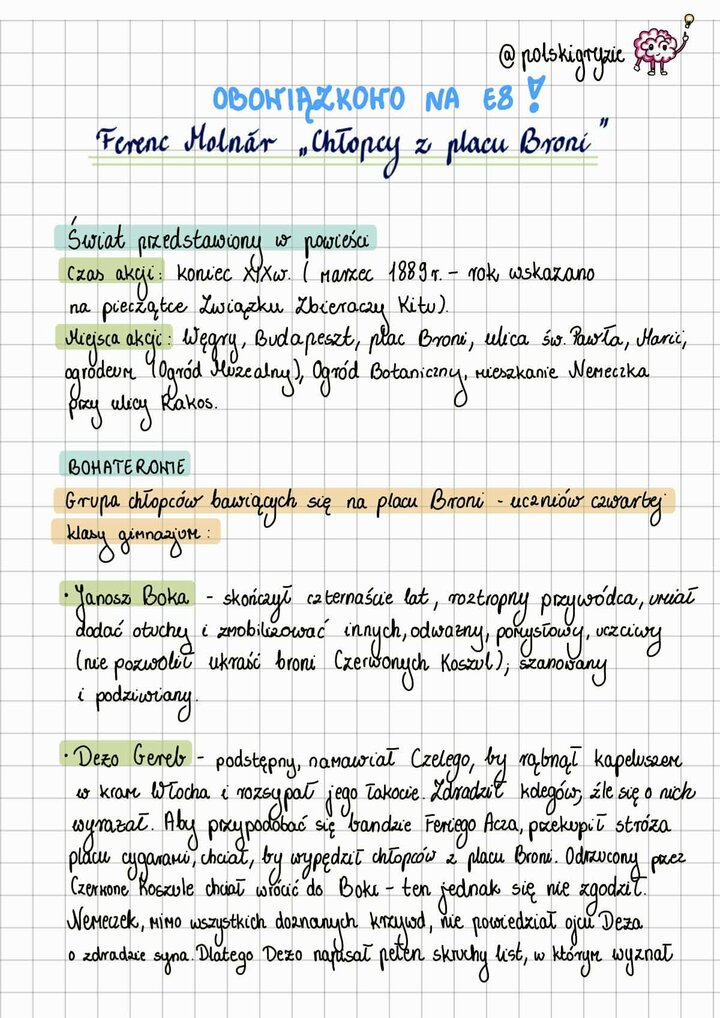 @polskigryzie
OBOWIĄZKOWO NA E8!
Ferenc Molnár „Chłopcy z placu Broni”
Świat przedstawiony w powieści
Czas akcji: koniec XIXw. (marzec 1889r. – rok wskazano
na pieczątce Związku Zbieraczy Kitu).
Miejsca akcji: Węgry, Budapeszt, plac Broni, ulica św. Pawła, Marii,
ogródeum (Ogród Muzealny), Ogród Botaniczny, mieszkanie Nemeczka
przy ulicy Rakos.
BOHATEROWIE
Grupa chłopców bawiących się na placu Broni - uczniów czwartej
klasy gimnazjum:
· Janosz Boka - skończył czternaście lat, roztropny przywódca, umiał
dodać otuchy i zmobilizować innych, odważny, pomysłowy, uczciwy
(nie pozwolił ukraść broni Czerwonych Koszul), szanowany
i podziwiany.
· Dezo Gereb - podstępny, namawiał Czelego, by rąbnął kapeluszem
w kram Włocha i rozsypał jego łakocie. Zdradził kolegów, źle się o nich
wyrażał. Aby przypodobać się bandzie Feriego Acza, przekupił stróża
placu cygarami, chciał, by wypędził chłopców z placu Broni. Odrzucony przez
Czerwone Koszule chciał wrócić do Boki – ten jednak się nie zgodził.
Nemeczek, mimo wszystkich doznanych krzywd, nie powiedział ojcu Deza
o zdradzie syna. Dlatego Dezo napisał pełen skruchy list, w którym wyznał